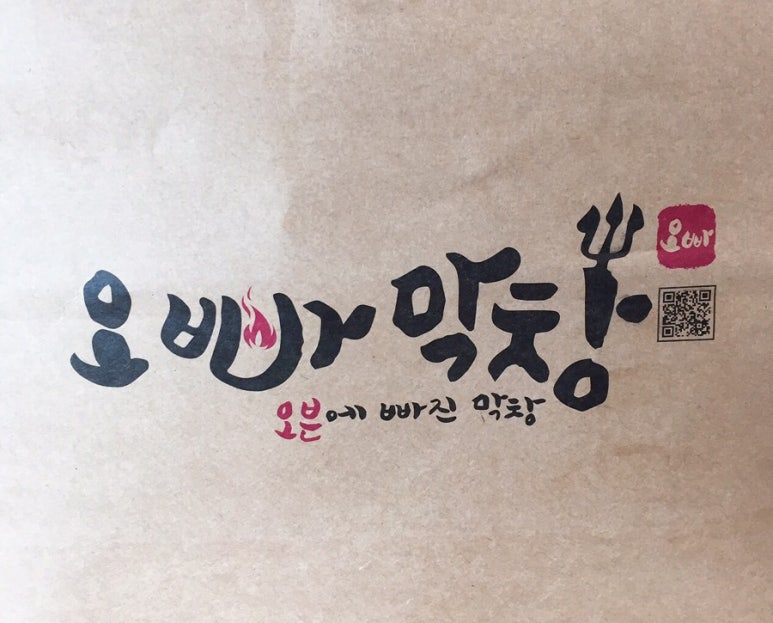 오빠막창
오빠
오븐에 빠진 막창